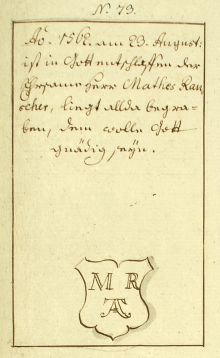 No. 73.
Ao. 1562. am 23. August:
ist in Gott entschlaffen der
Ehrsame Herr Mathes Rau
scher, liegt allda begra=
ben, dem wolle Gott
gnädig seÿn.
M R
A